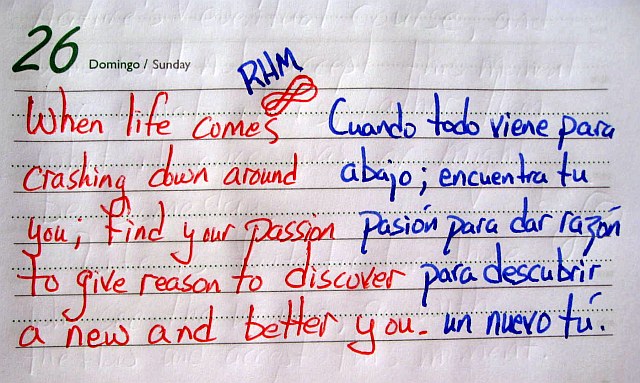 26 Domingo / Sunday
RHM
When life comes
crashing down around
you; find your passion
to give reason to discover
a new and better you.
Cuando todo viene para
abajo; encuentra tu
pasión para dar razón
para descubrir
un nuevo tú.